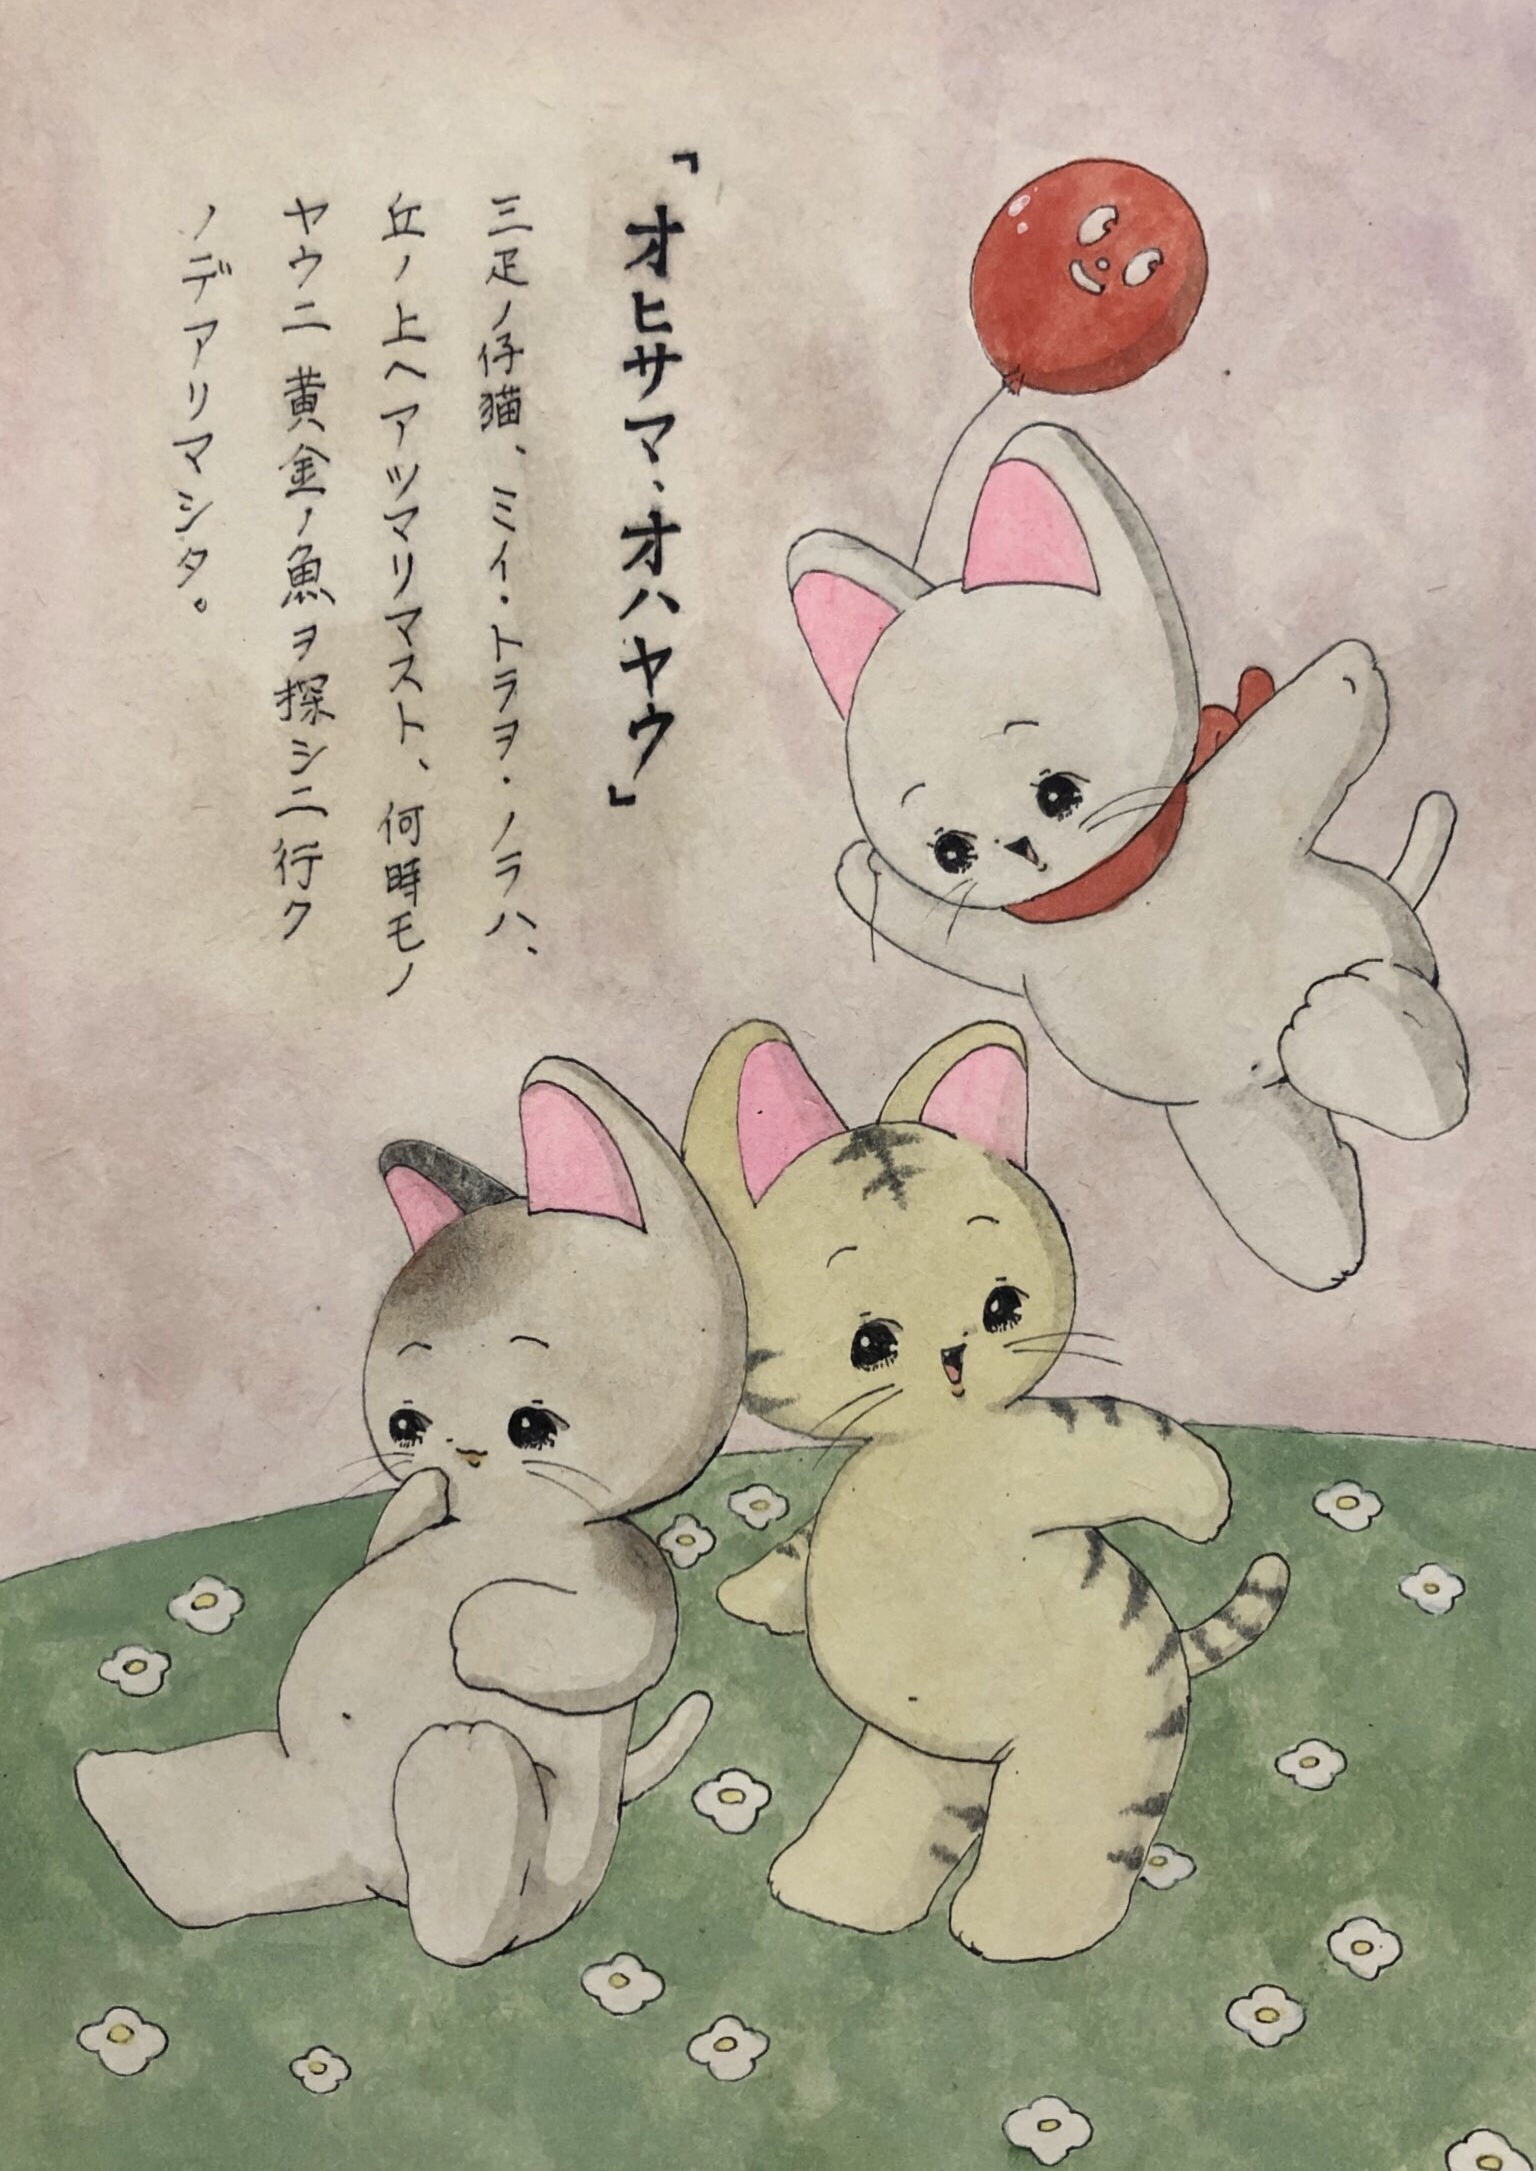 「オヒサマ・オハヤウ」
三疋ノ仔猫、ミイ・トラヲ・ノラハ、
丘ノ上ヘアツマリマスト、何時モノ
ヤウニ黄金ノ魚ヲ探シニ行ク
ノデアリマシタ。